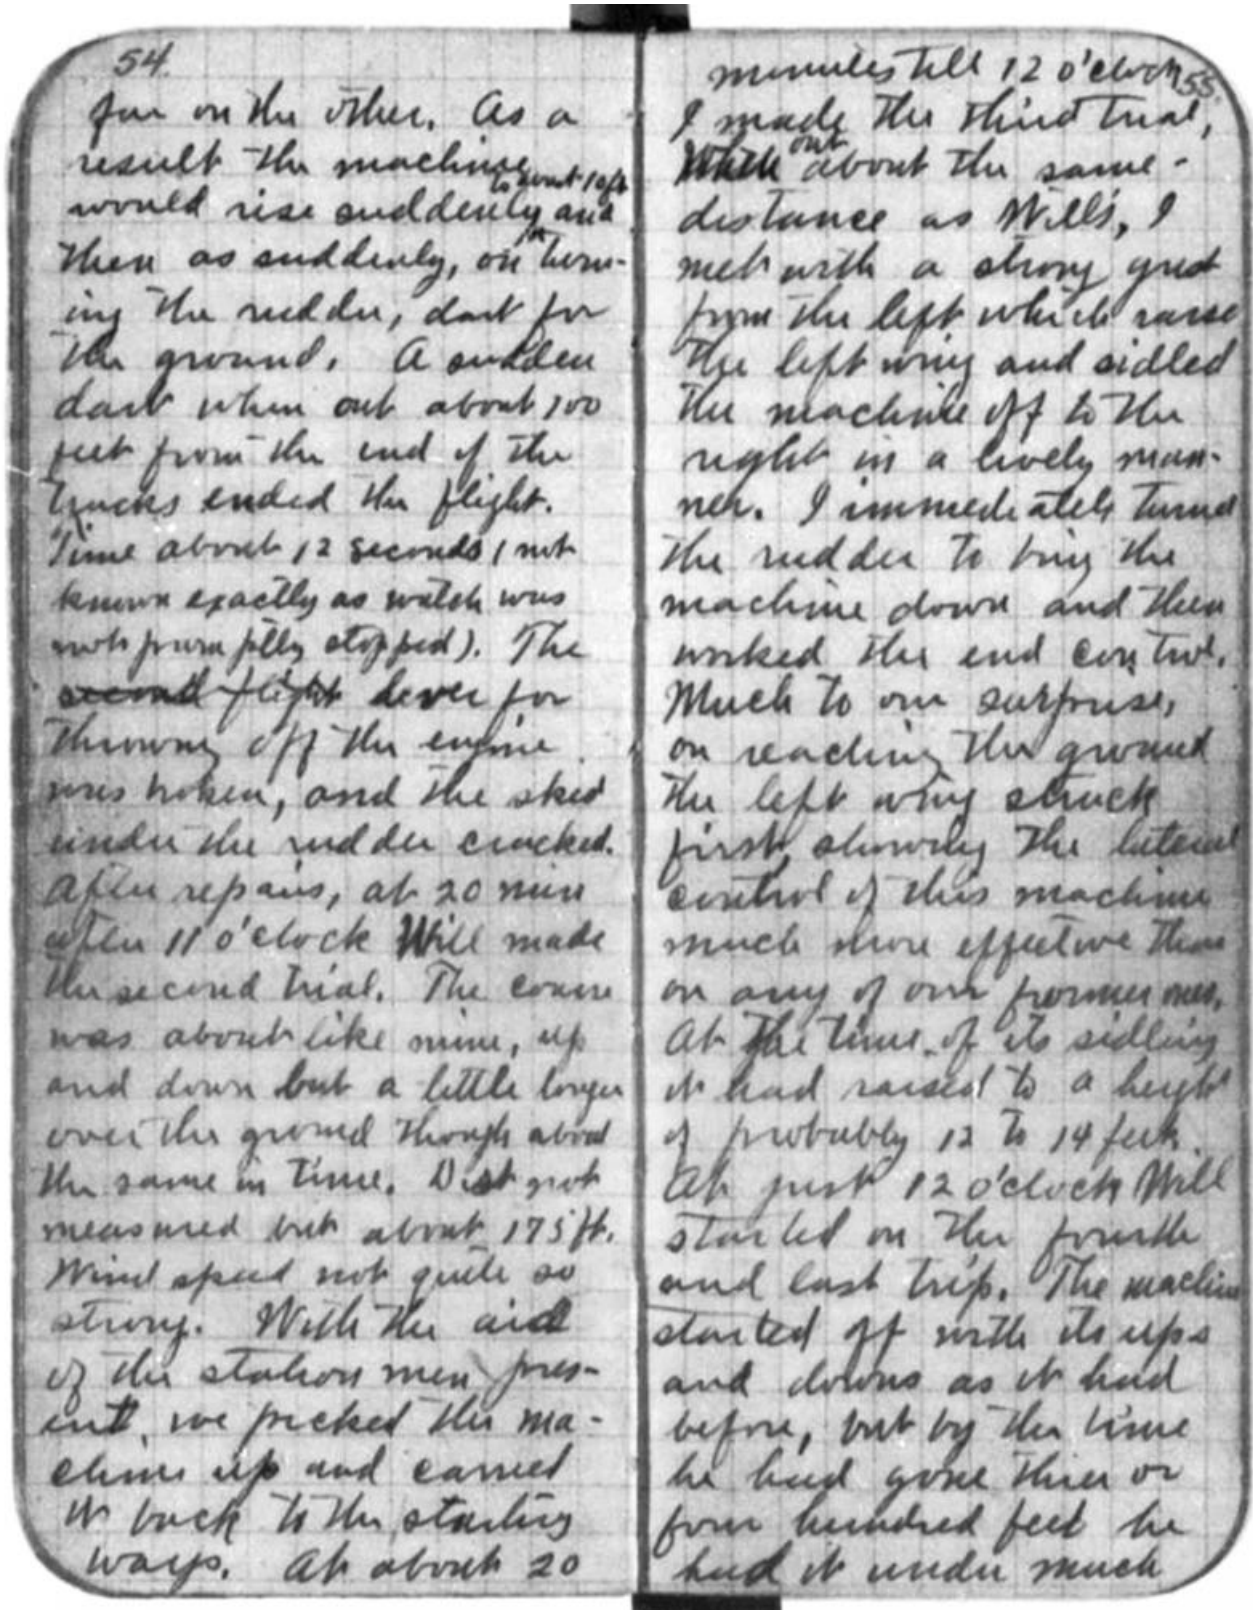 54.
far on the other. As a
result the machine
to about 10 ft
would rise suddenly and
then as suddenly, on turn-
ing the rudder, dart for
the ground. A sudden
dart when out about 100
feet from the end of the
tracks ended the flight.
Time about 12 seconds (not
known exactly as watch was
not promptly stopped). The
second flight lever for
throwing off the engine
was broken, and the skid
under the rudder cracked.
After repairs, at 20 min
after 11 o'clock Will made
the second trial. The course
was about like mine, up
and down but a little longer
over the ground though about
the same in time. Dist not
measured but about 175 ft.
Wind speed not quite so
strong. With the aid
of the station men pres-
ent, we picked the ma-
chine up and carried
it back to the starting
ways. At about 20
55.
minutes till 12 o'clock
I made the third trial,
out
When about the same
distance as Will's, I
met with a strong gust
from the left which raise
the left wing and sidled
the machine off to the
right in a lively man-
ner. I immediately turned
the rudder to bring the
machine down and then
worked the end control.
Much to our surprise,
on reaching the ground
the left wing struck
first, showing the lateral
control of this machine
much more effective than
on any of our former ones.
At the time of its sidling
it had raised to a height
of probably 12 to 14 feet.
At just 12 o'clock Will
started on the fourth
and last trip. The machine
started off with its ups
and downs as it had
before, but by the time
he had gone three or
four hundred feet he
had it under much